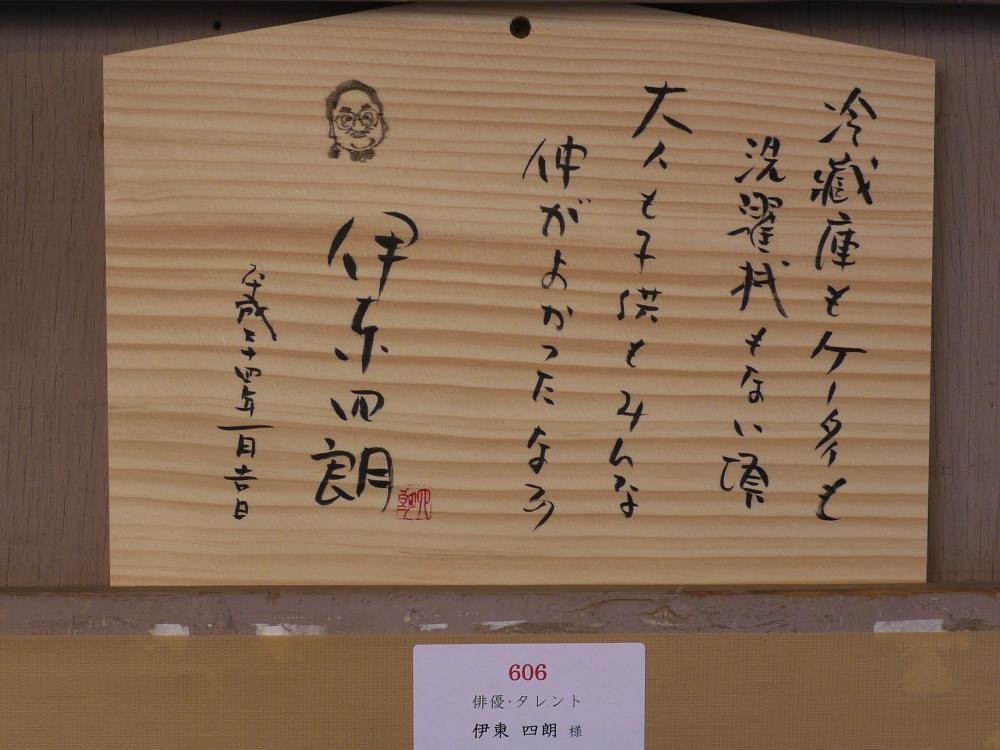 冷蔵庫もケータイも
洗濯機もない頃
大人も子供もみんな
仲がよかったなあ
伊東四朗
平成二十四年一月吉日
606
俳優・タレント
伊東 四朗 様